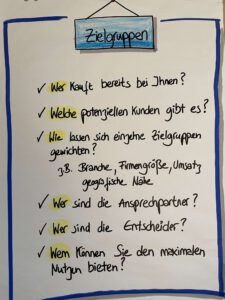 Zielgruppen
✓ Wer kauft bereits bei Ihnen?
✓ Welche potenziellen Kunden gibt es?
✓ Wie lassen sich einzelne Zielgruppen
gewichten?
z.B. Branche, Firmengröße, Umsatz
geografische Nähe
✓ Wer sind die Ansprechpartner?
✓ Wer sind die Entscheider?
✓ Wem können Sie den maximalen
Nutzen bieten?